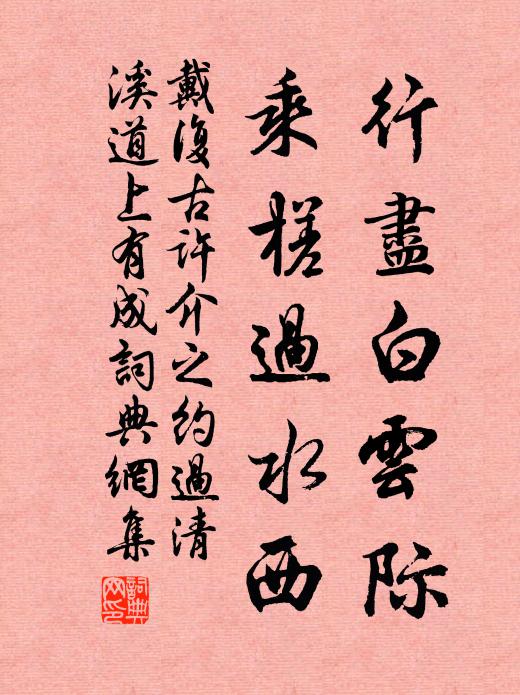 行盡白雲际
乘槎過水西
戴復古许介之約過清
溪道上有成詞典網集
詞典網印